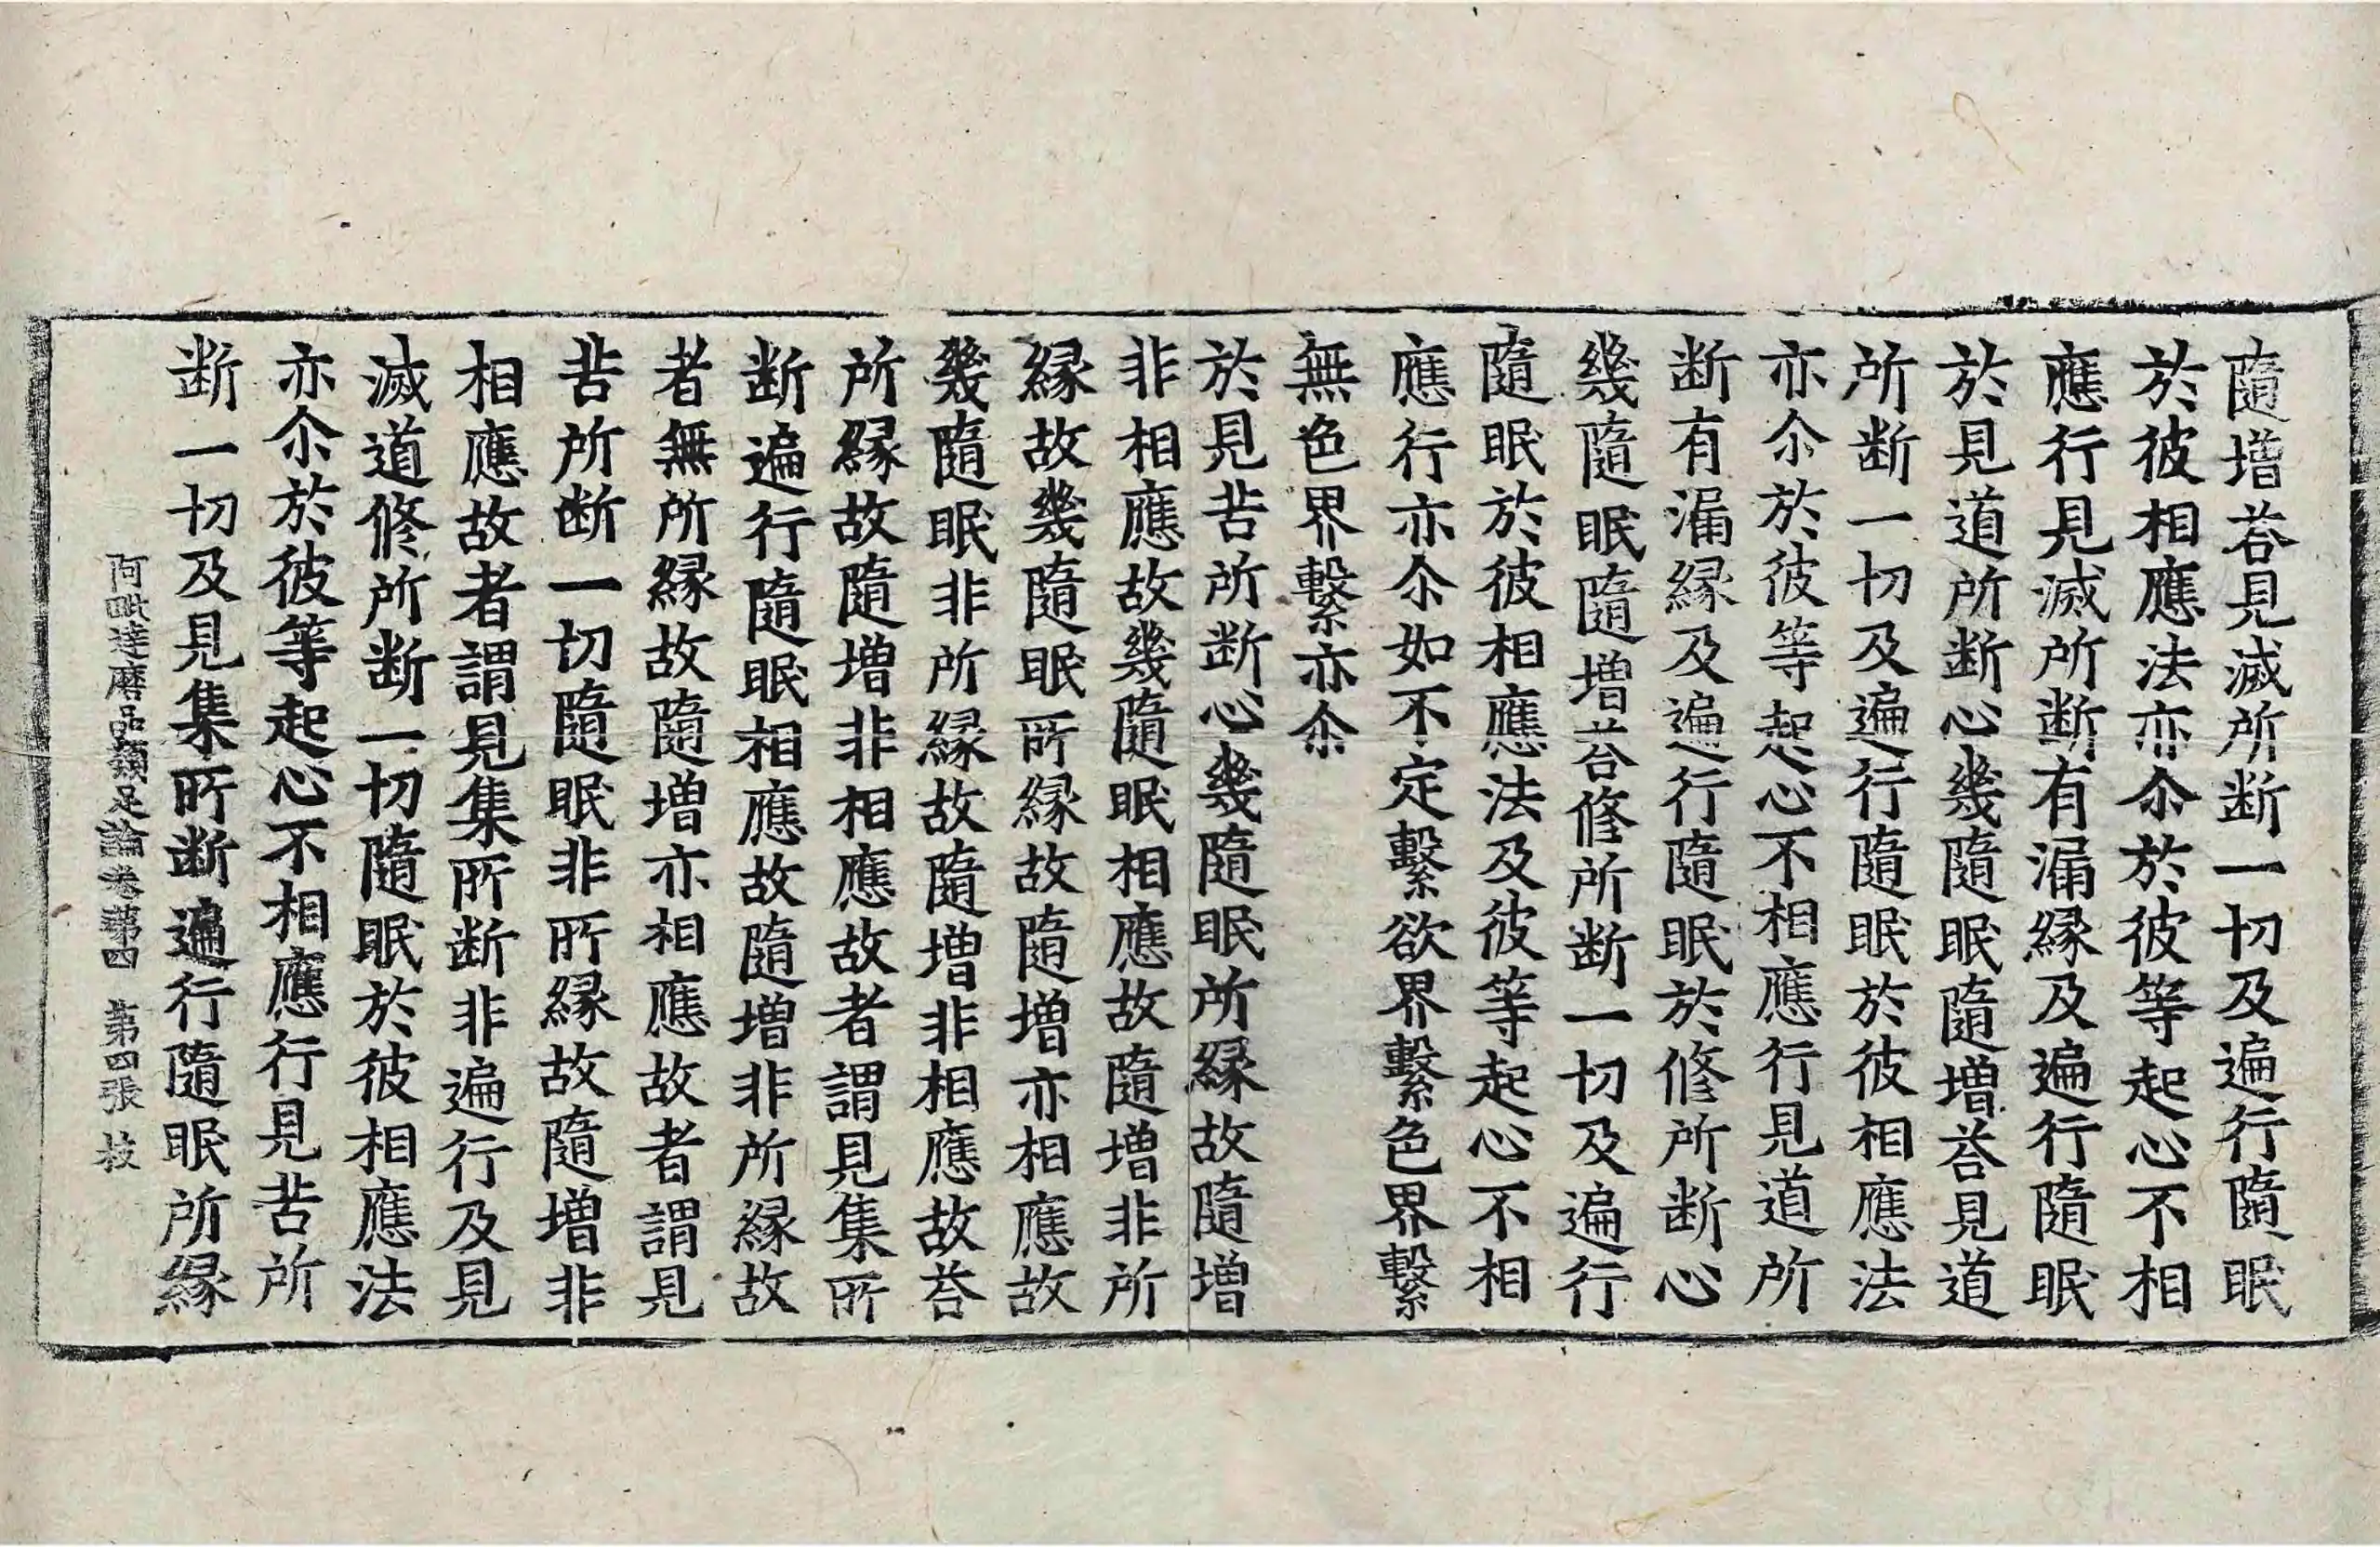 隨増荅見滅所断一切及遍行隨眠
於彼相應法亦尒於彼等起心不相
應行見滅所断有漏縁及遍行隨眠
於見道所断心幾隨眠隨増荅見道
所断一切及遍行隨眠於彼相應法
亦尒於彼等起心不相應行見道所
断有漏縁及遍行隨眠於修所断心
幾隨眠隨増荅修所断一切及遍行
隨眠於彼相應法及彼等起心不相
應行亦尒如不定繫欲界繫色界繫
無色界繫亦尒
於見苦所断心幾隨眠所縁故隨増
非相應故幾隨眠相應故隨増非所
縁故幾隨眠所縁故隨増亦相應故
幾隨眠非所縁故隨増非相應故荅
所縁故隨増非相應故者謂見集所
断遍行隨眠相應故隨増非所縁故
者無所縁故隨増亦相應故者謂見
苦所断一切隨眠非所縁故隨増非
相應故者謂見集所断非遍行及見
滅道修所断一切隨眠於彼相應法
亦尒於彼等起心不相應行見苦所
断一切及見集所断遍行隨眠所縁
阿毗達磨品類足論卷第四 第四張 枝